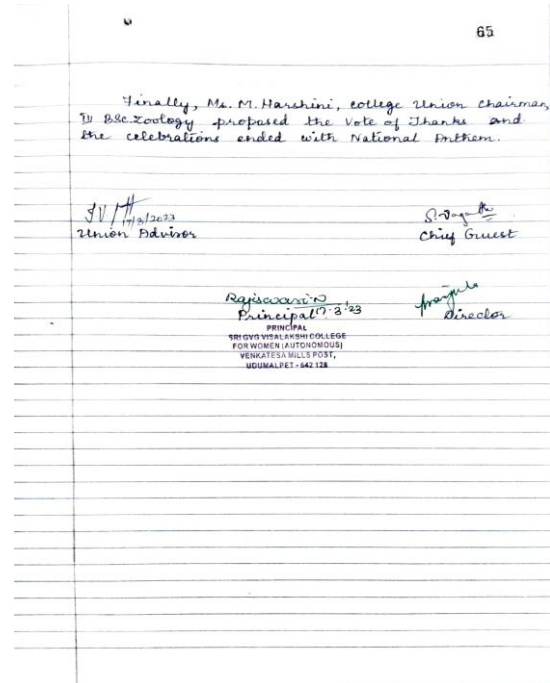 65
Finally, Ms. M. Harshini, college Union Chairman,
III BSc. Zoology proposed the Vote of Thanks and
the celebrations ended with National Anthem.
17/3/2023
Union Advisor
Chief Guest
Rajiswari.N
Principal 17.3.'23
Director
PRINCIPAL
SRI GVG VISALAKSHI COLLEGE
FOR WOMEN (AUTONOMOUS)
VENKATESA MILLS POST,
UDUMALPET - 642 128